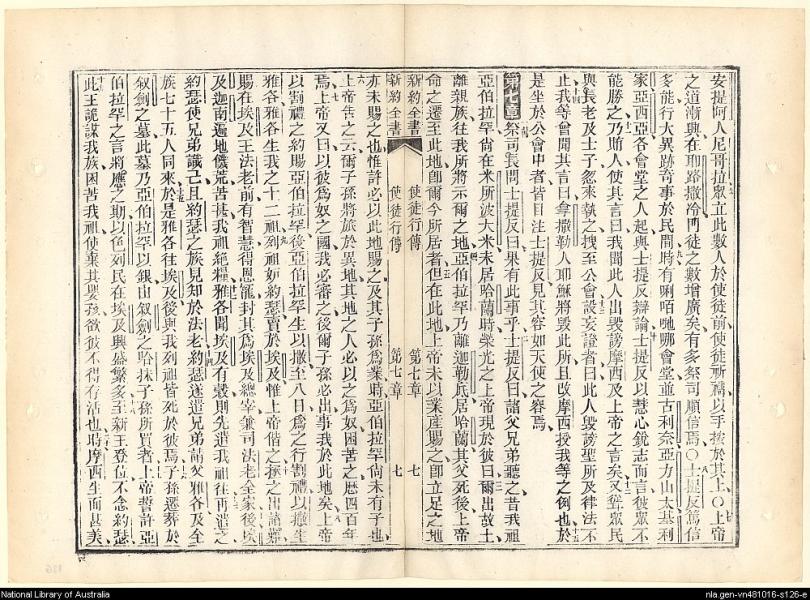 安提阿人尼哥拉眾立此數人於使徒前使徒祈禱以手按於其上○上帝
之道漸興在耶路撒冷門徒之數增廣矣有多祭司順信焉○士提反篤信
多能行大異跡奇事於民間時有唎吥哋哪會堂並古利奈亞方山大基利
家亞西亞各會堂之人起與士提反辯論士提反以慧心銳志而言彼眾不
能勝之乃賄人使其言曰我聞此人出毀謗摩西及上帝之言矣又聳眾民
與長老及士子忽來執之拽至公會設妄證者曰此人毀謗聖所及律法不
止我等曾聞其言曰拿撒勒人耶穌將毀此所且改摩西授我等之例也於
是坐於公會中者皆目注士提反見其容如天使之容焉
第七章祭司長問士提反曰果有此事乎士提反曰諸父兄弟聽之昔我祖
亞伯拉罕尚在米所波大米未居哈蘭時榮光之上帝現於彼曰爾出故土
離親族往我所將示爾之地亞伯拉罕乃離迦勒底居哈蘭其父死後上帝
命之遷至此地即爾今所居者但在此地上帝未以業產賜之即立足之地
新約全書 使徒行傳 第七章 七
新約全書 使徒行傳 第七章 七
亦未賜之也惟許必以此地賜之及其子孫為業時亞伯拉罕尚未有子也
上帝告之云爾子孫將旅於異地其地之人必以之為奴困苦之歷四百年
焉上帝又曰以彼為奴之國我必審之後爾子孫必出事我於此地矣上帝
以割禮之約賜亞伯拉罕後亞伯拉罕生以撒至八日為之行割禮以撒生
雅各雅各生我之十二祖列祖妒約瑟賣於埃及惟上帝偕之拯之出諸難
賜在埃及王法老前有智慧得恩寵封其為埃及總宰兼司法老全家後埃
及迦南遍地饑荒苦甚我祖絕糧雅各聞埃及有穀則先遣我祖往再遣之
約瑟使兄弟識己且約瑟之族見知於法老約瑟遂遣兄弟請父雅各及全
族七十五人同來於是雅各往埃及後與我列祖皆死於彼焉子孫遷葬於
敘劍之墓此墓乃亞伯拉罕以銀由敘劍之哈抹子孫所買者上帝誓許亞
伯拉罕之言將應之期以色列民在埃及興盛繁多至新王登位不念約瑟
此王詭謀我族困苦我祖使棄其嬰孩欲彼不得存活也時摩西生而甚美
National Library of Australia
nla.gen-vn481016-s126-e